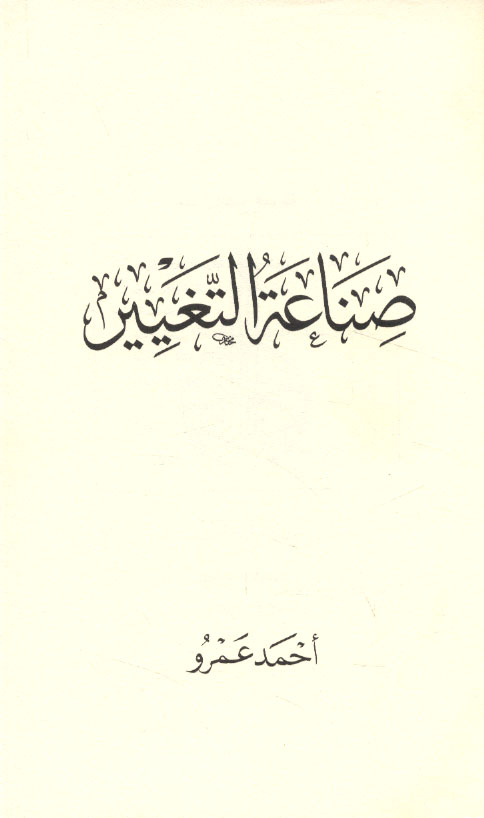 صِنَاعَةُ التَّغْيِيْرِ
أحْمَد عَمْرُو